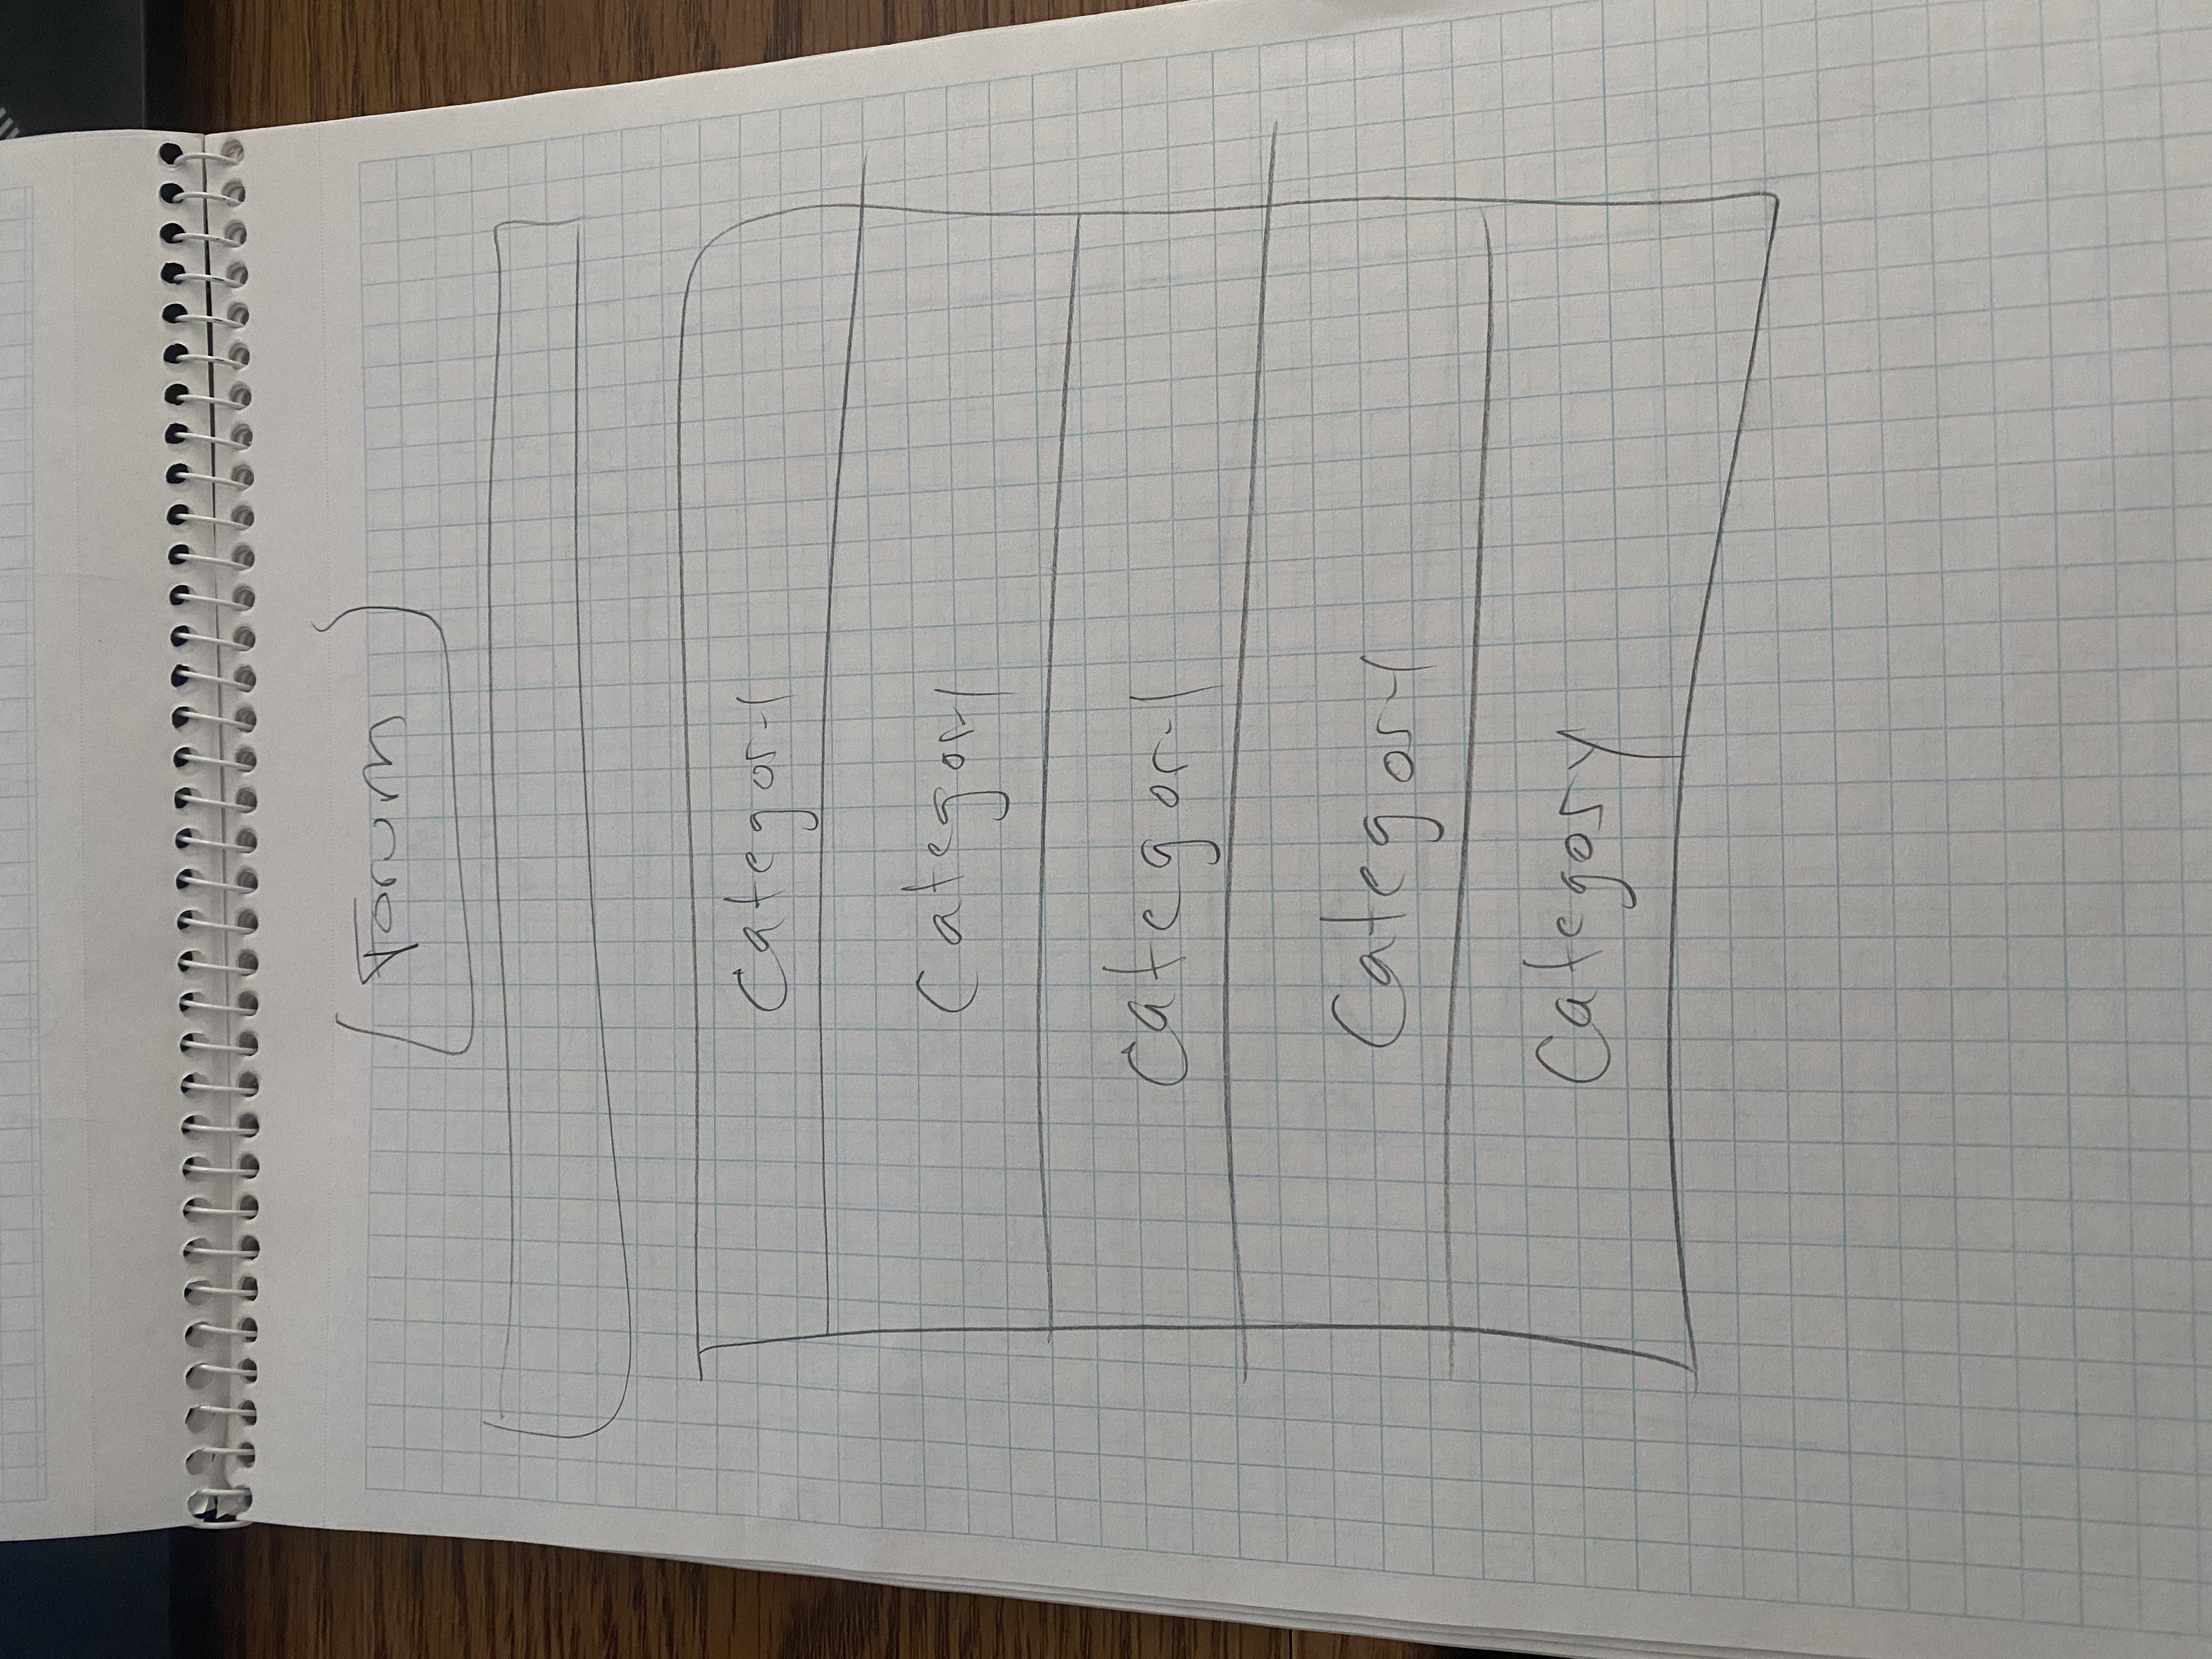 Forum
Category
Category
Category
Category
Category